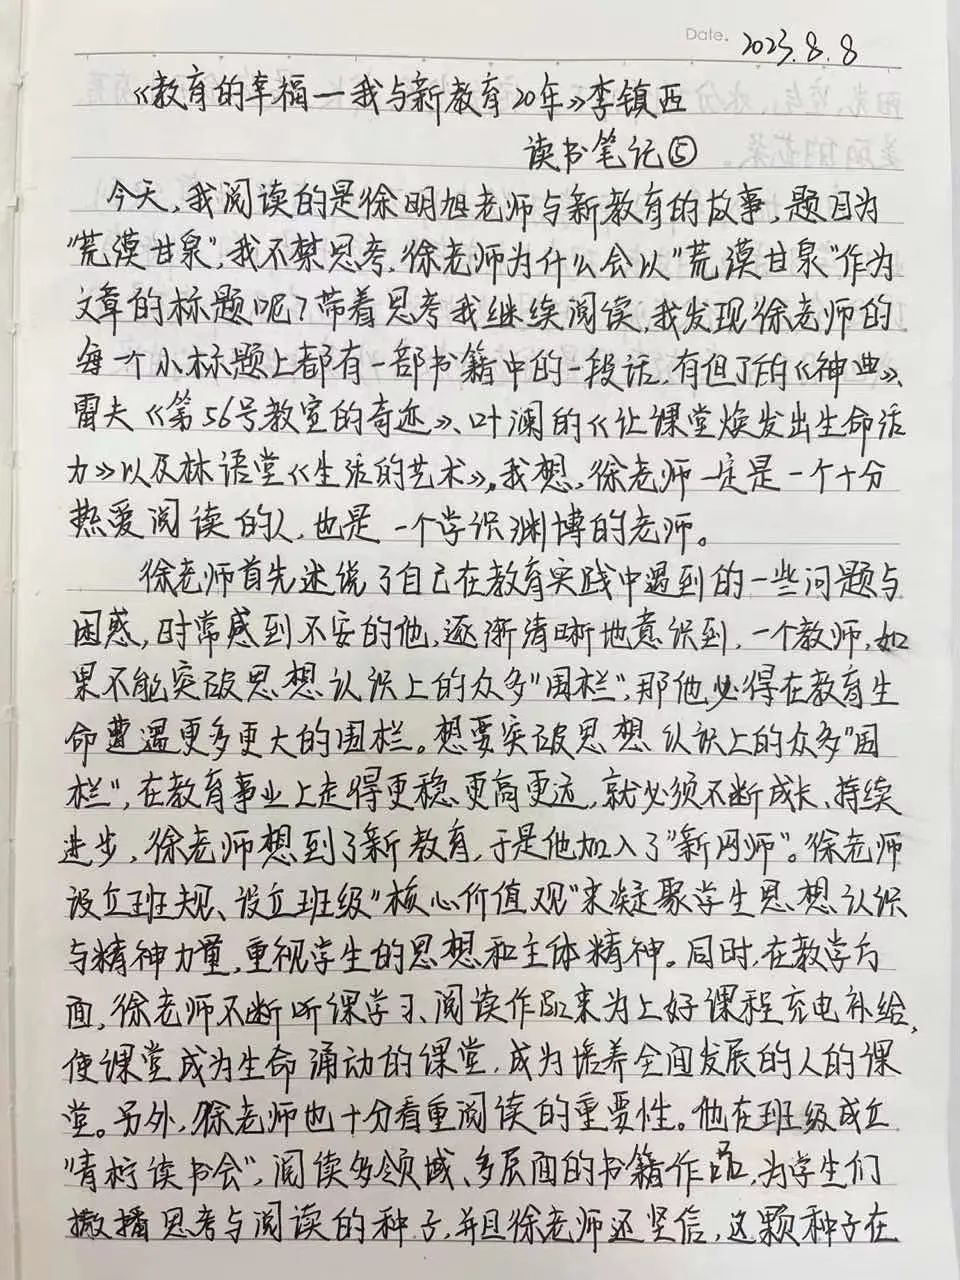 Date. 2023.8.8
《教育的幸福一我与新教育20年》李镇西
读书笔记⑤
今天,我阅读的是徐明旭老师与新教育的故事,题目为
"荒漠甘泉",我不禁思考,徐老师为什么会以"荒漠甘泉"作为
文章的标题呢?带着思考我继续阅读,我发现徐老师的
每一个小标题上都有一部书籍中的一段话,有但丁的《神曲》、
雷夫《第56号教室的奇迹》、叶澜的《让课堂焕发出生命活
力》以及林语堂《生活的艺术》。我想,徐老师一定是一个十分
热爱阅读的人,也是一个学识渊博的老师。
徐老师首先述说了自己在教育实践中遇到的一些问题与
困惑,时常感到不安的他,逐渐清晰地意识到,一个教师,如
果不能突破思想认识上的众多"围栏",那他必得在教育生
命遭遇更多更大的围栏。想要突破思想认识上的众多"围
栏",在教育事业上走得更稳更高更远,就必须不断成长、持续
进步,徐老师想到了新教育,于是他加入了"新网师"。徐老师
设立班规、设立班级"核心价值观"来凝聚学生思想认识
与精神力量,重视学生的思想和主体精神。同时,在教学方
面,徐老师不断听课学习、阅读作品来为上好课程充电补给,
使课堂成为生命涌动的课堂,成为培养全面发展的人的课
堂。另外,徐老师也十分看重阅读的重要性。他在班级成立
"青柠读书会",阅读多领域、多层面的书籍作品,为学生们
撒播思考与阅读的种子,并且徐老师还坚信,这颗种子在